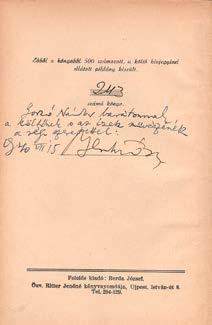 Ebből a könyvből 500 számozott, a költő kézjegyével
ellátott példány készült.
243
számú könyv.
Nándor barátomnak
a költőnek s az
a régi szeretettel:
940 VII 15
Felelős kiadó: Berda József.
Özv. Ritter Jenőné könyvnyomdája, Ujpest, István-út 8.
Tel. 294-129.